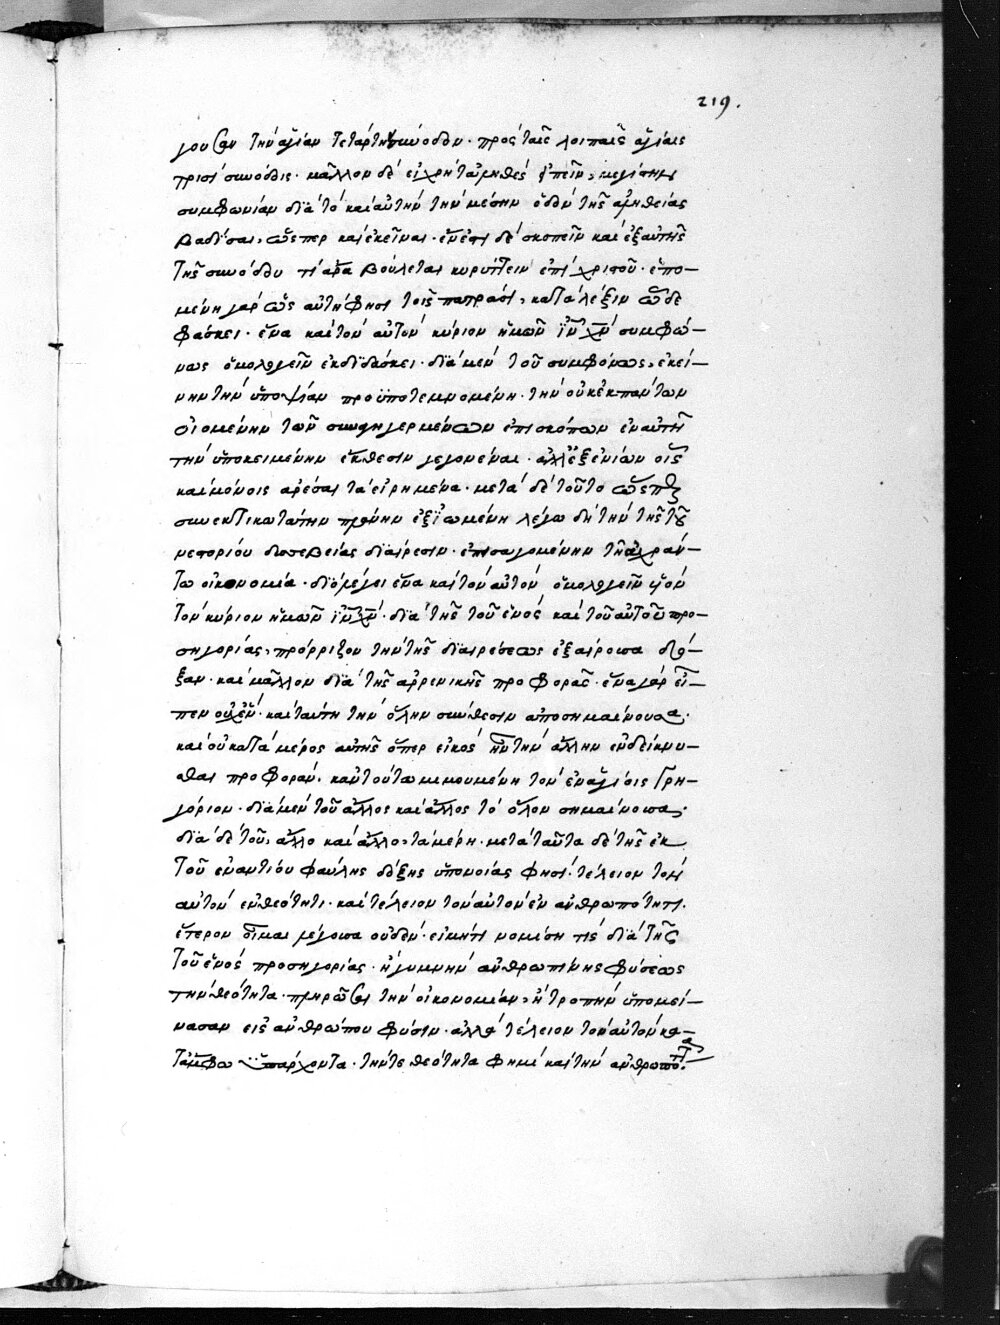 219.
γουσαν τὴν ἁγίαν τετάρτην σύνοδον· πρὸς ταῖς λοιπαῖς ἁγίαις
τρισὶ συνόδοις· μᾶλλον δὲ εἰ χρὴ τἀληθὲς εἰπεῖν, μεγίστην
συμφωνίαν διὰ τὸ καὶ αὐτὴν τὴν μέσην ὁδὸν τῆς ἀληθείας
βαδίσαι, ὥσπερ καὶ ἐκεῖναι· ἔνεστι δὲ σκοπεῖν καὶ ἐξ αὐτῆς
τῆς συνόδου τί ἄρα βούλεται κηρύττειν ἐπὶ χριστοῦ· ἑπο-
μένη γὰρ ὡς αὐτή φησι τοῖς πατράσι, κατὰ λέξιν ὧδε
φάσκει· ἕνα καὶ τὸν αὐτὸν κύριον ἡμῶν ἰν χν συμφώ-
νως ὁμολογεῖν ἐκδιδάσκει· διὰ μὲν τοῦ συμφώνως, ἐκεί-
νην τὴν ὑποψίαν προϋποτεμνομένη· τὴν οὐκ ἐκ πάντων
οἰομένην τῶν συνηγερμένων ἐπισκόπων ἐν αὐτῇ
τὴν ὑποκειμένην ἔκθεσιν γεγονέναι· ἀλλ' ἐξ ἐνίων οἷς
καὶ μόνοις ἀρέσαι τὰ εἰρημένα· μετὰ δὲ τοῦτο ὥσπερ
συνεκτικωτάτην πλάνην ἐξιωμένη λέγω δὴ τὴν τῆς τοῦ
νεστορίου δυσσεβείας διαίρεσιν· ἐπεισαγομένην τῇ ἀχράν-
τῳ οἰκονομίᾳ· διὸ λέγει ἕνα καὶ τὸν αὐτὸν ὁμολογεῖν υἱὸν
τὸν κύριον ἡμῶν ἰν χν· διὰ τῆς τοῦ ἑνὸς καὶ τοῦ αὐτοῦ προ-
σηγορίας, πρόρριζον τὴν τῆς διαιρέσεως ἐξαίρουσα δό-
ξαν· καὶ μᾶλλον διὰ τῆς ἀρρενικῆς προφορᾶς· ἕνα γὰρ εἶ-
πεν οὐχ ἕν· καὶ ταύτῃ τὴν ὅλην σύνθεσιν ἀποσημαίνουσα·
καὶ οὐ κατὰ μέρος αὐτῆς ὅπερ εἰκὸς ἦν τὴν ἄλλην ἐνδείκνυ-
σθαι προφοράν. κἀν τούτῳ μιμουμένη τὸν ἐν ἁγίοις Γρη-
γόριον· διὰ μὲν τοῦ ἄλλος καὶ ἄλλος τὸ ὅλον σημαίνουσα,
διὰ δὲ τοῦ, ἄλλο καὶ ἄλλο, τὰ μέρη· μετὰ ταῦτα δὲ τῆς ἐκ
τοῦ ἐναντίου φαύλης δόξης ὑπονοίας φησὶ· τέλειον τὸν
αὐτὸν ἐν θεότητι· καὶ τέλειον τὸν αὐτὸν ἐν ἀνθρωπότητι.
ἕτερον οἶμαι λέγουσα οὐδὲν· εἰ μή τι νομίσῃ τίς διὰ τῆς
τοῦ ἑνὸς προσηγορίας· ἢ γυμνὴν ἀνθρωπίνης φύσεως
τὴν θεότητα· πληρῶσαι τὴν οἰκονομίαν, ἢ τροπὴν ὑπομεί-
νασαν εἰς ἀνθρώπου φύσιν· ἀλλὰ τέλειον τὸν αὐτὸν κα-
τἄμφω ὑπάρχοντα· τήν τε θεότητα φημὶ καὶ τὴν ἀνθρωπότητα.